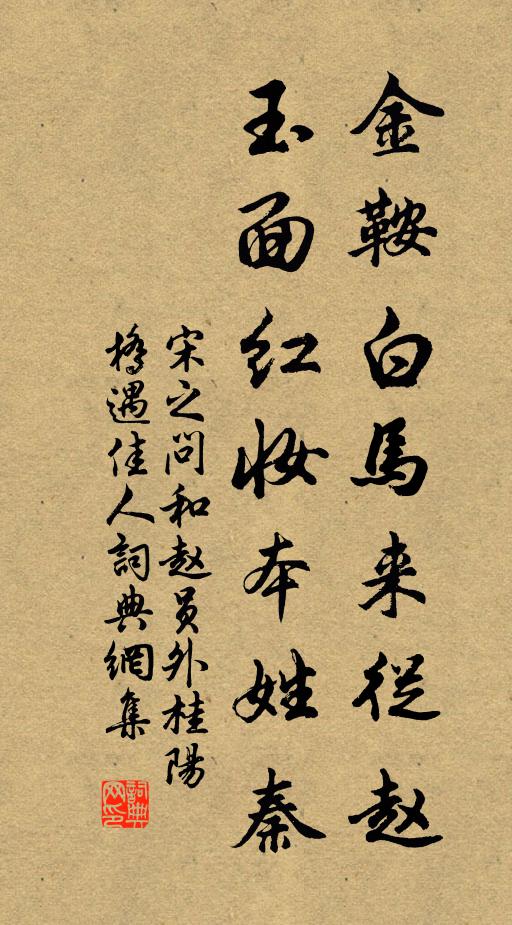 金鞍白馬来從赵
玉面红妝本姓秦
宋之问和赵员外桂陽
橋遇佳人詞典網集
詞典网印